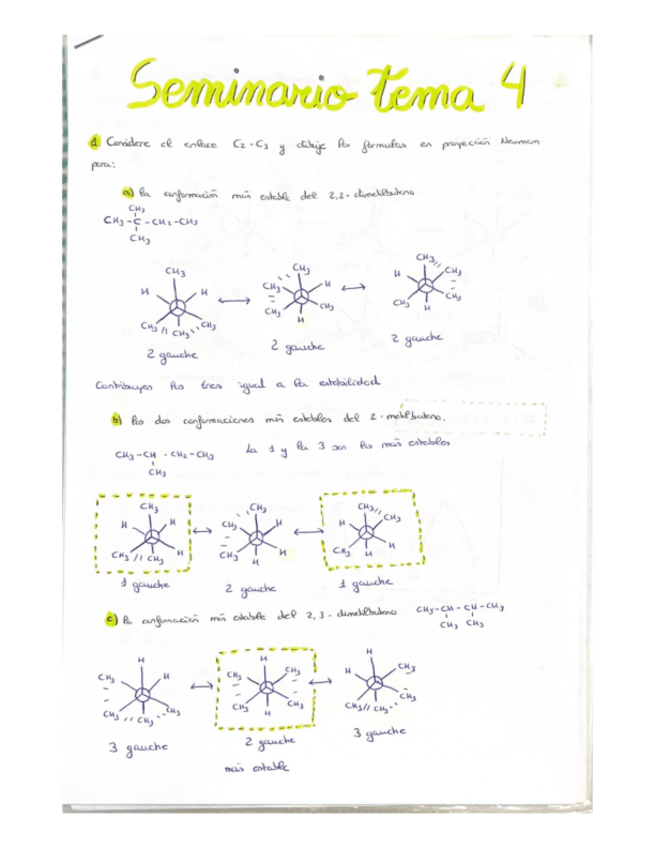 Seminario tema 4
1 Considere el enlace C2-C3 y dibuje las formulas en proyección Newman
para:
a) la conformación más estable del 2,2-dimetilbutano
CH3
CH3-C-CH2-CH3
CH3
CH3 CH3 CH3
H H CH3 H H CH3
CH3 CH3 CH3 CH3 CH3 CH3 CH3
H H
2 gauche 2 gauche 2 gauche
Contribuyen las tres igual a la estabilidad
b) las dos conformaciones más estables del 2-metilbutano.
CH3-CH-CH2-CH3 La 1 y la 3 son las más estables
CH3
CH3 CH3 CH3
H H CH3 H H CH3
CH3 CH3 H CH3 H CH3 H H
H
1 gauche 2 gauche 1 gauche
c) la conformación más estable del 2,3-dimetilbutano CH3-CH-CH-CH3
CH3 CH3
H H H
CH3 H CH3 CH3 H CH3
CH3 CH3 CH3 CH3 H CH3 CH3 CH3 CH3
3 gauche 2 gauche 3 gauche
más estable